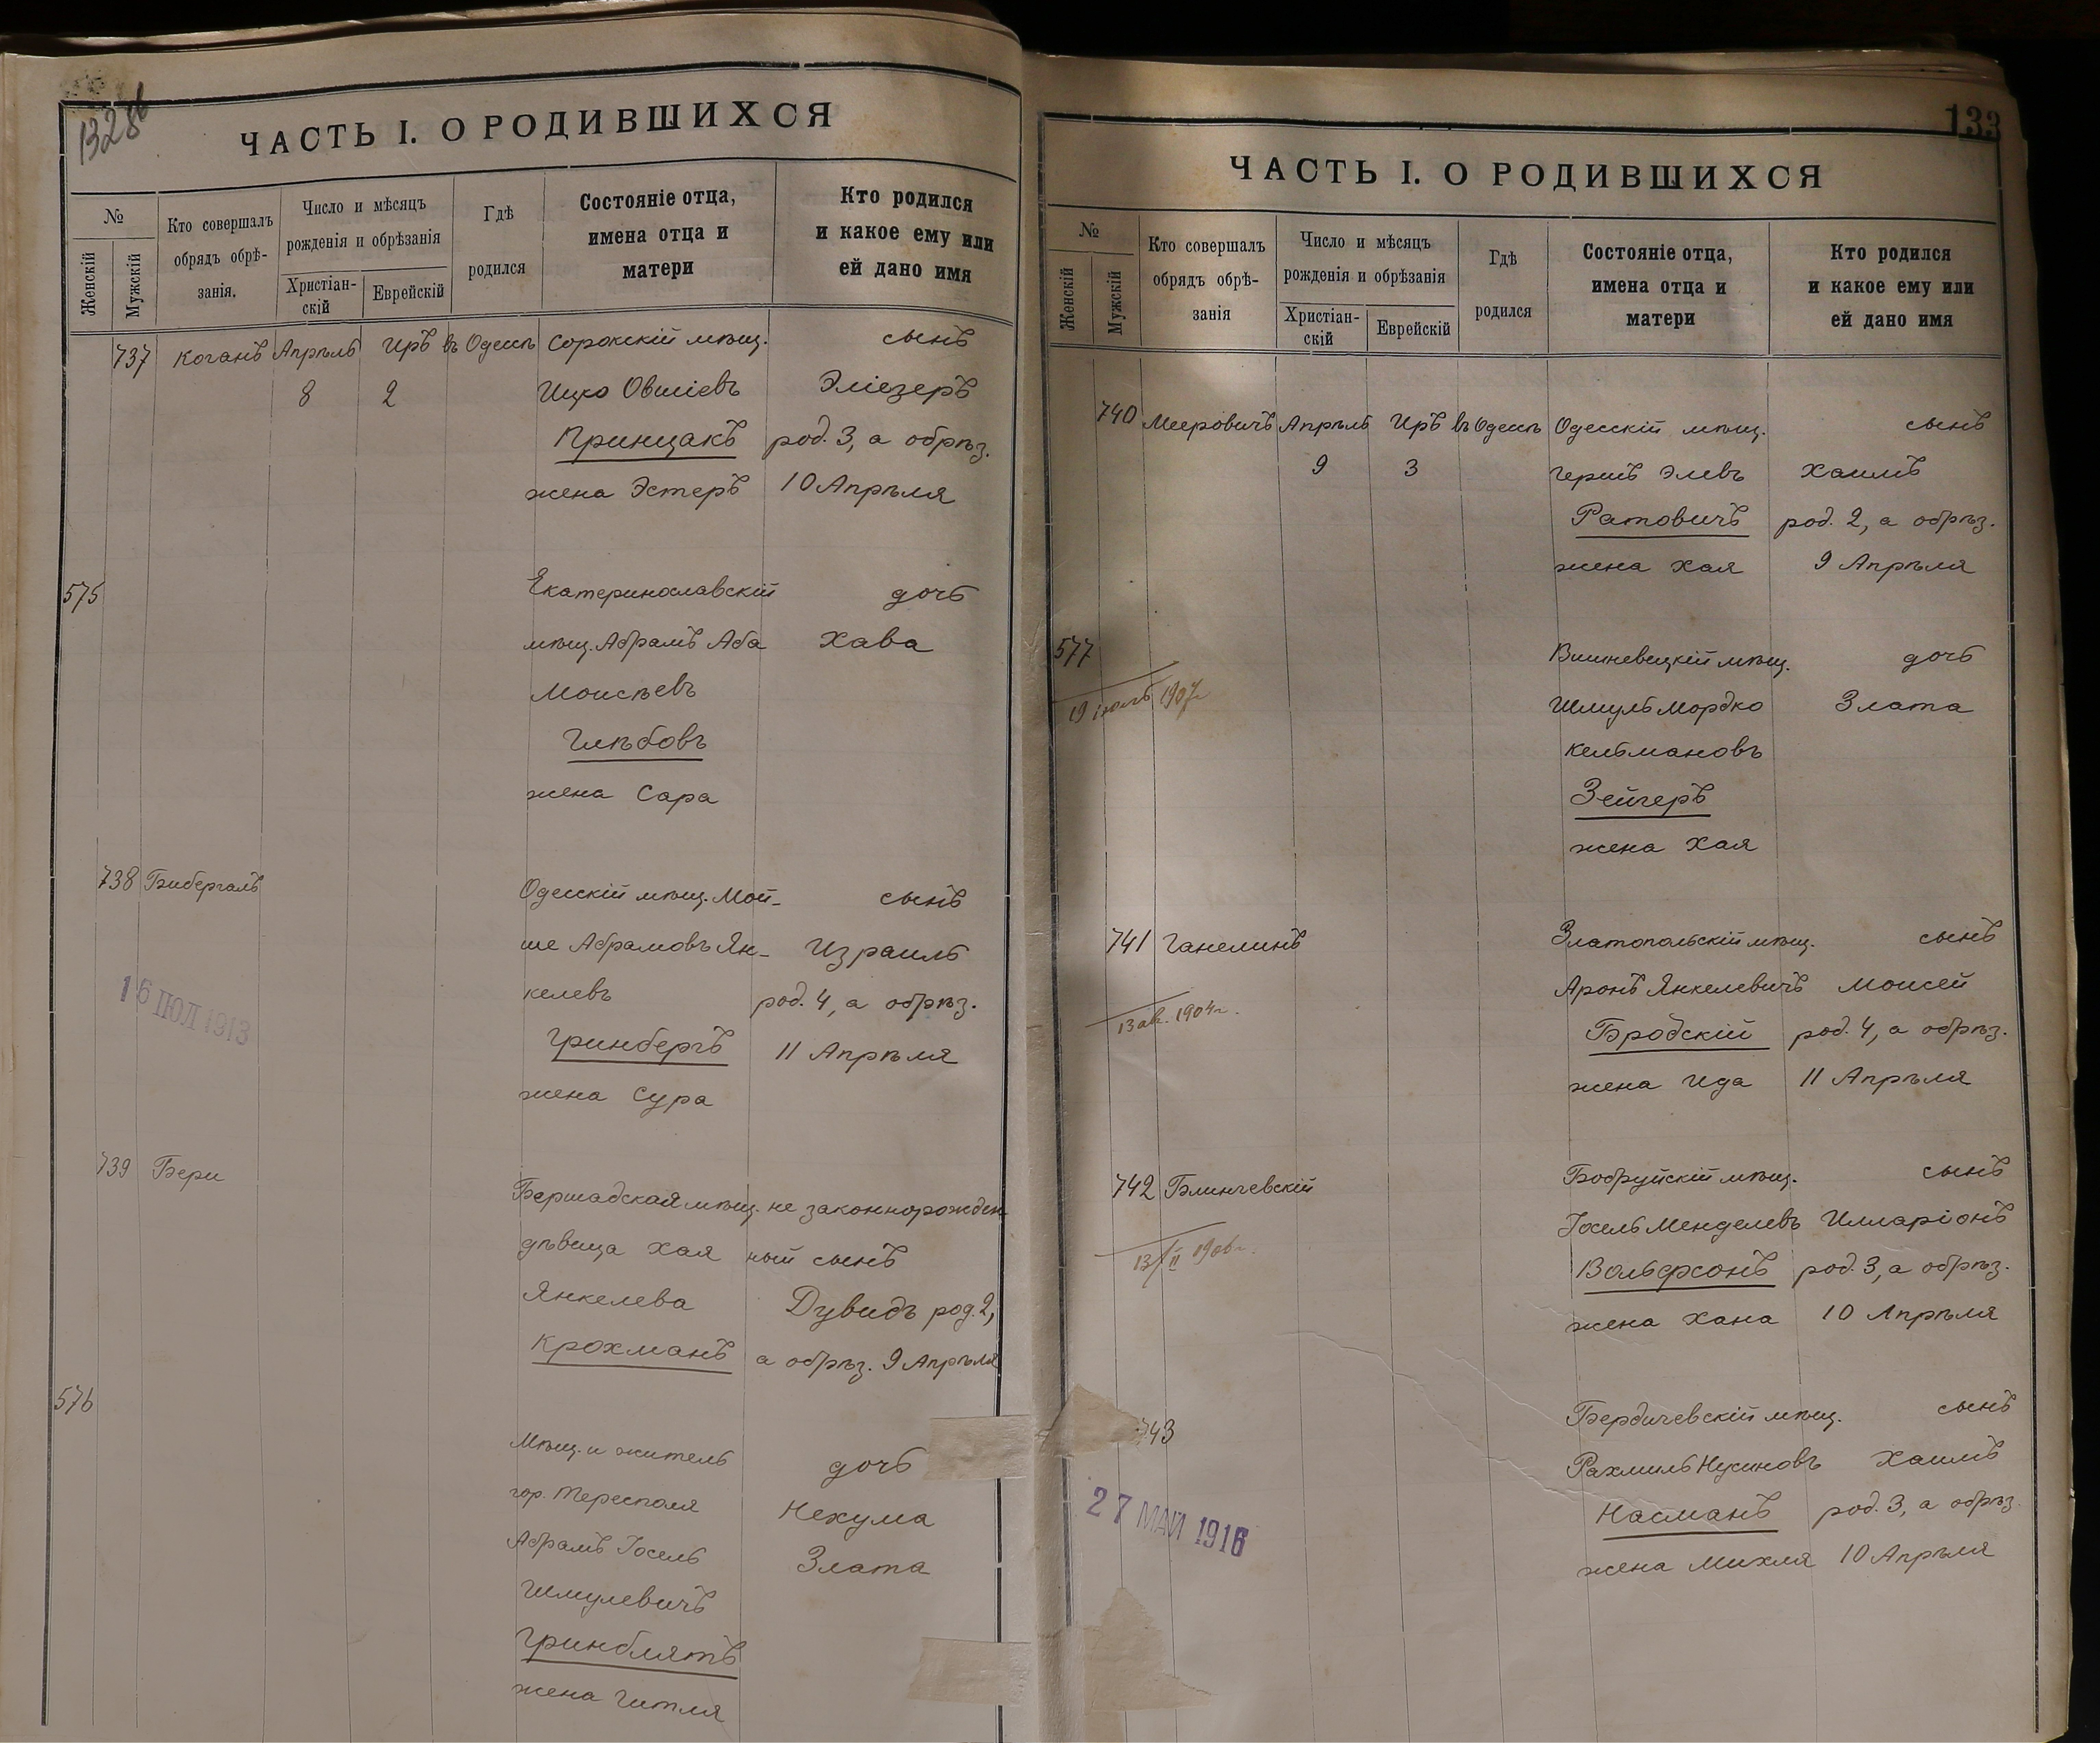 132об
ЧАСТЬ I. О РОДИВШИХСЯ
№
Женскій
Мужскій
Кто совершалъ
обрядъ обрѣ-
занія.
Число и мѣсяцъ
рожденія и обрѣзанія
Христіан-
скій
Еврейскій
Гдѣ
родился
Состояніе отца,
имена отца и
матери
Кто родился
и какое ему или
ей дано имя
737 Коганъ Апрѣль Иръ въ Одессѣ Сорокскій мѣщ. сынъ
8 2 Ицко Овшіевъ Эліезеръ
Принцакъ род. 3, а обрѣз.
жена Эстеръ 10 Апрѣля
575 Екатеринославскій дочь
мѣщ. Абрамъ Аба Хава
Моисѣевъ
Глѣбовъ
жена Сара
738 Бибергалъ Одесскій мѣщ. Мой- сынъ
ше Абрамовъ Ян- Израиль
келевъ род. 4, а обрѣз.
16 ІЮЛ 1913
Гринбергъ 11 Апрѣля
жена Сура
739 Бери Бершадская мѣщ. не законнорожден
дѣвица Хая ный сынъ
Янкелева Дувидъ род. 2,
Крохманъ а обрѣз. 9 Апрѣля
576
Мѣщ. и житель дочь
гор. Тересполя Нехума
Абрамъ Іосель Злата
Шмулевичъ
Гринблятъ
жена Гитля
133
ЧАСТЬ I. О РОДИВШИХСЯ
№
Женскій
Мужскій
Кто совершалъ
обрядъ обрѣ-
занія
Число и мѣсяцъ
рожденія и обрѣзанія
Христіан-
скій
Еврейскій
Гдѣ
родился
Состояніе отца,
имена отца и
матери
Кто родился
и какое ему или
ей дано имя
740 Мееровичъ Апрѣль Иръ въ Одессѣ Одесскій мѣщ. сынъ
9 3 Гершъ Элевъ Хаимъ
Ратовичъ род. 2, а обрѣз.
жена Хая 9 Апрѣля
577 Вишневецкій мѣщ. дочь
19 іюль 1907г
Шмуль Мордко Злата
Кельмановъ
Зейгеръ
жена Хая
741 Ганелинъ Златопольскій мѣщ. сынъ
Аронъ Янкелевичъ Моисей
13 ав. 1904г.
Бродскій род. 4, а обрѣз.
жена Ида 11 Апрѣля
742 Блинчевскій Бобруйскій мѣщ. сынъ
Іосель Менделевъ Илларіонъ
Вольфсонъ род. 3, а обрѣз.
жена Хана 10 Апрѣля
743 Бердичевскій мѣщ. сынъ
Рахмиль Нусиновъ Хаимъ
27 МАЙ 1916
Насманъ род. 3, а обрѣз.
жена Михля 10 Апрѣля